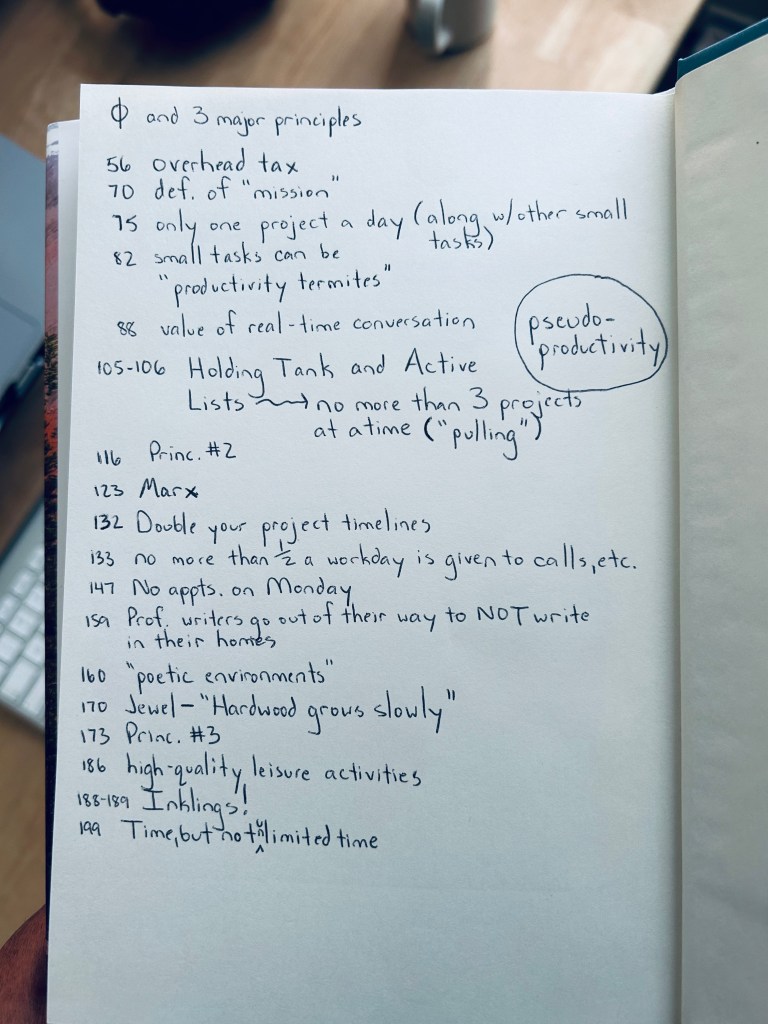 Φ and 3 major principles
56 overhead tax
70 def. of "mission"
75 only one project a day (along w/other small
tasks)
82 small tasks can be
"productivity termites"
88 value of real-time conversation
pseudo-
productivity
105-106 Holding Tank and Active
Lists → no more than 3 projects
at a time ("pulling")
116 Princ. #2
123 Marx
132 Double your project timelines
133 no more than 1/2 a workday is given to calls, etc.
147 No appts. on Monday
159 Prof. writers go out of their way to NOT write
in their homes
160 "poetic environments"
170 Jewel - "Hardwood grows slowly"
173 Princ. #3
186 high-quality leisure activities
188-189 Inklings!
199 Time, but not unlimited time